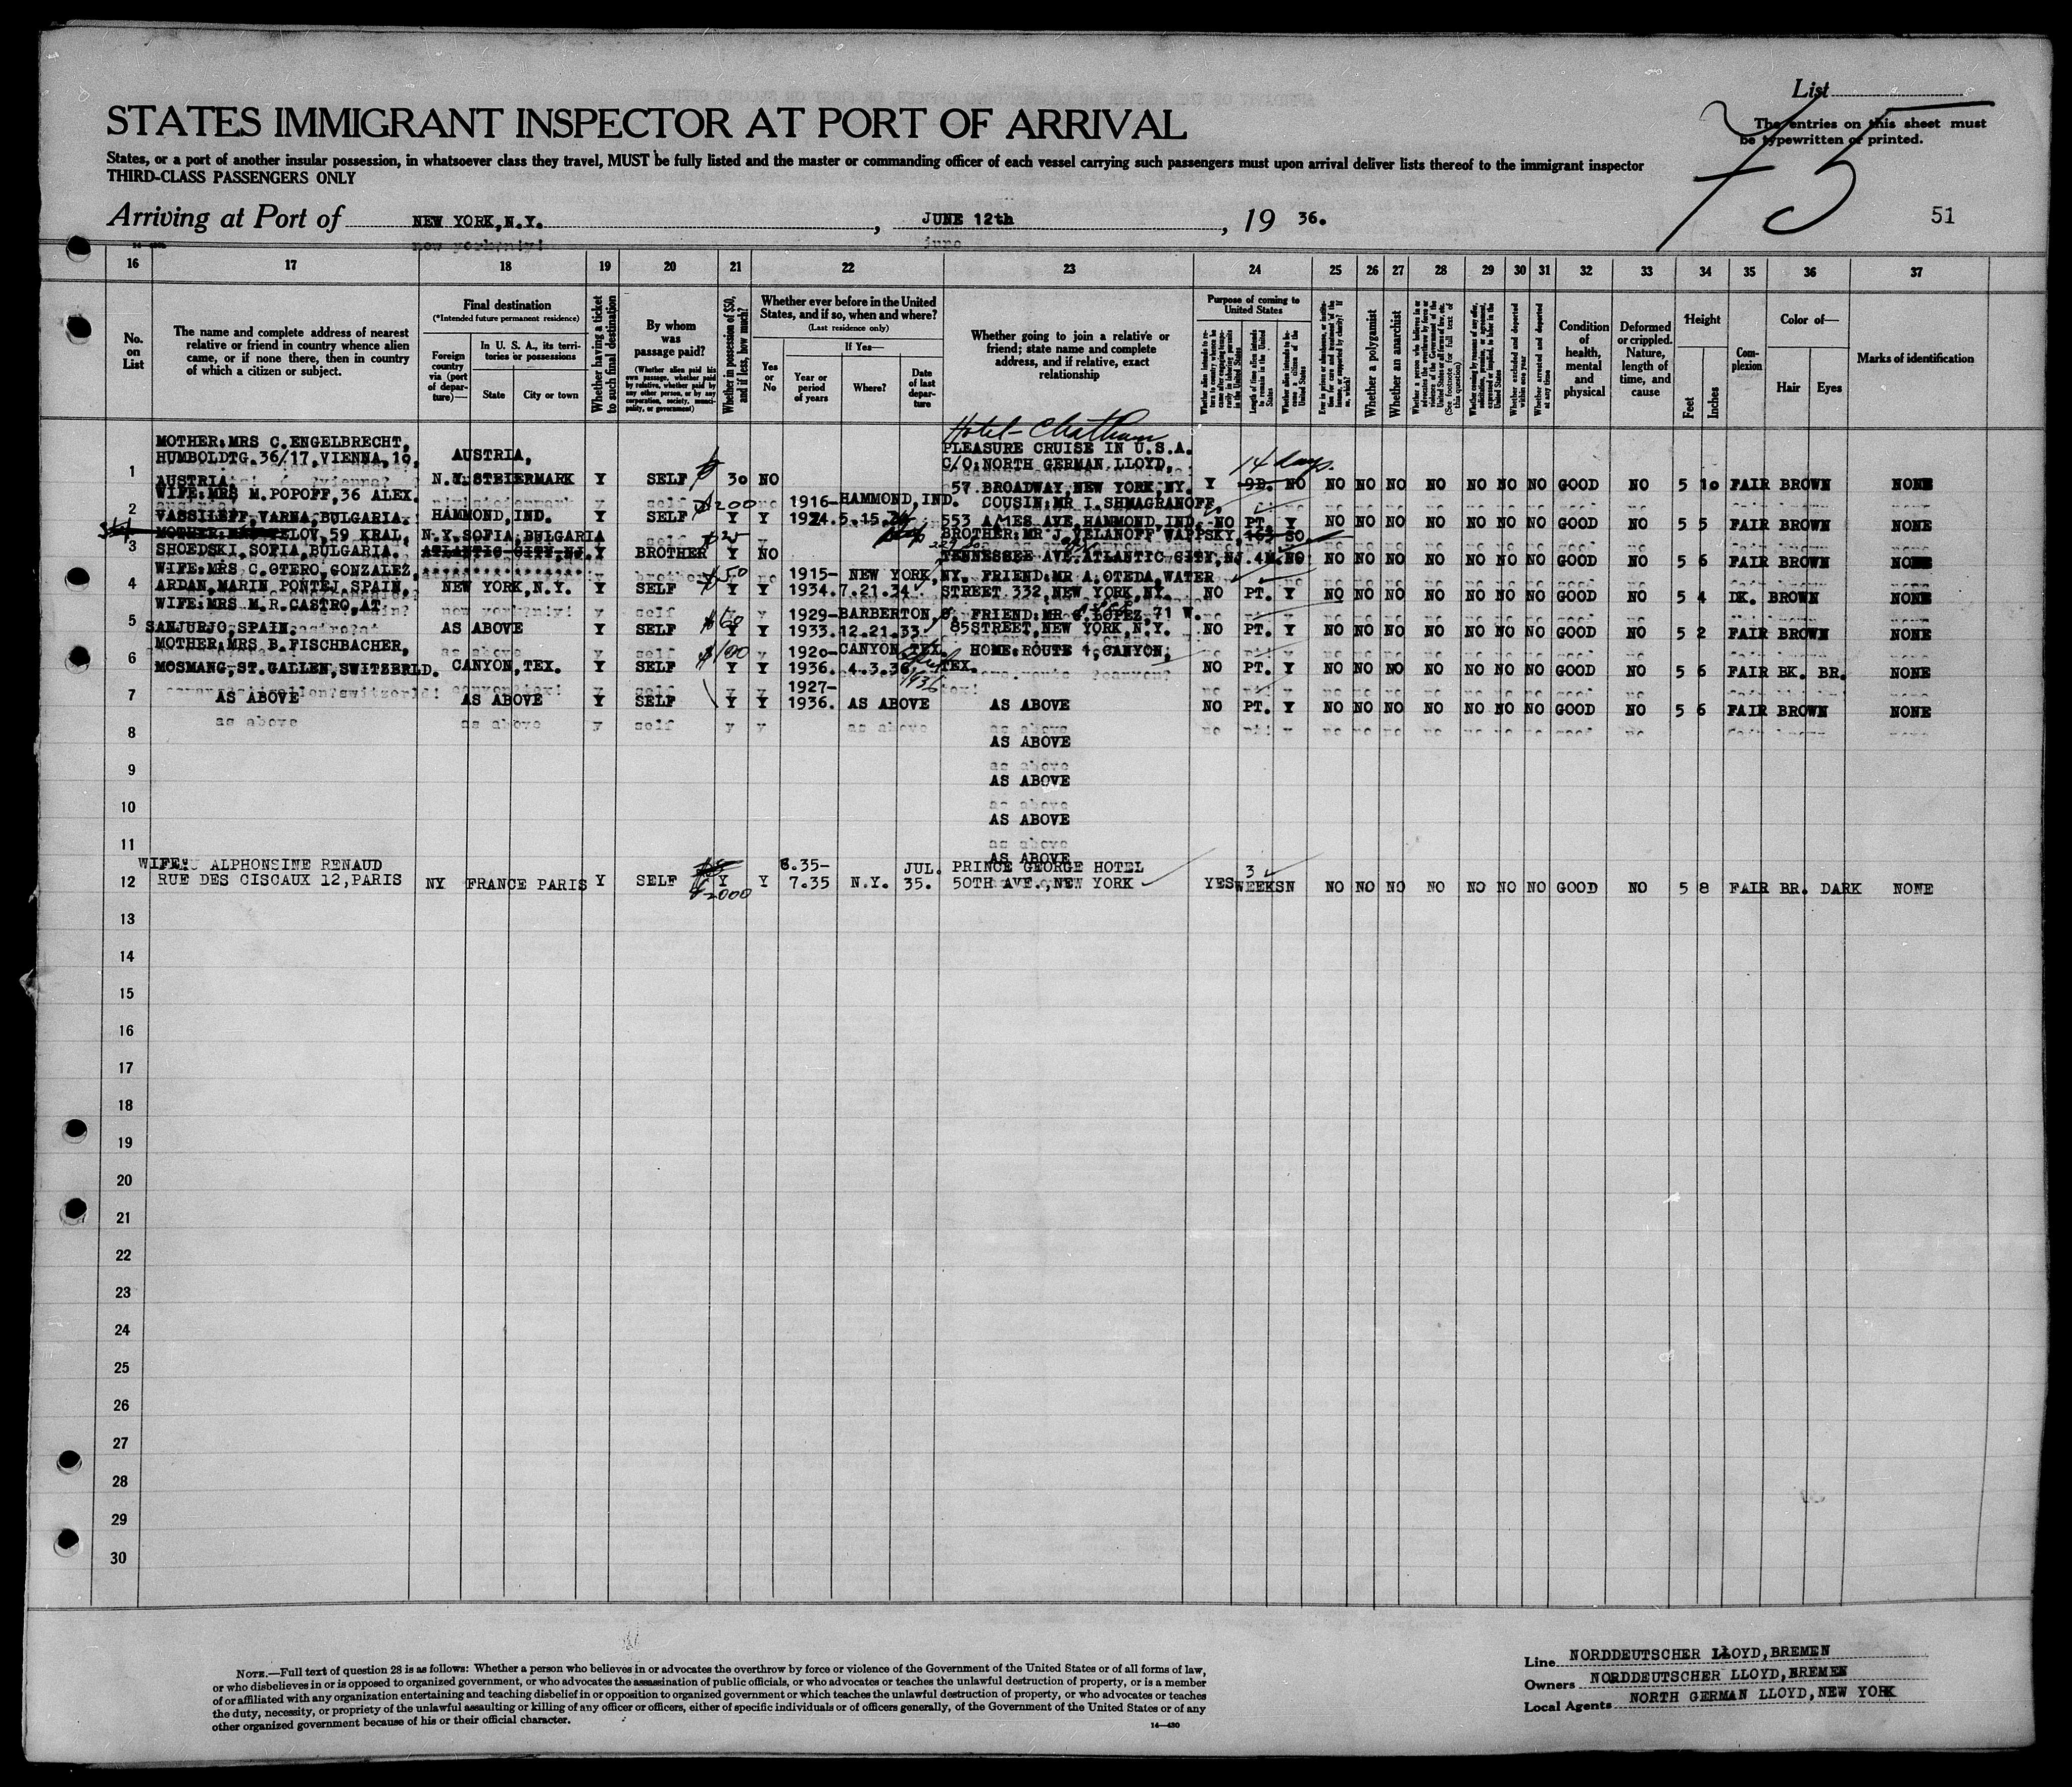 List
The entries on this sheet must
be typewritten or printed.
75
51
STATES IMMIGRANT INSPECTOR AT PORT OF ARRIVAL
States, or a port of another insular possession, in whatsoever class they travel, MUST be fully listed and the master or commanding officer of each vessel carrying such passengers must upon arrival deliver lists thereof to the immigrant inspector
THIRD-CLASS PASSENGERS ONLY
Arriving at Port of NEW YORK,N.Y. , JUNE 12th , 19 36.
16 17 18 19 20 21 22 23 24 25 26 27 28 29 30 31 32 33 34 35 36 37
No. on List
The name and complete address of nearest relative or friend in country whence alien came, or if none there, then in country of which a citizen or subject.
Final destination
(*Intended future permanent residence)
Foreign country via (port of departure)—
In U. S. A., its territories or possessions
State
City or town
Whether having a ticket to such final destination
By whom was passage paid?
(Whether alien paid his own passage, whether paid by relative, whether paid by any other person, or by any corporation, society, municipality, or government)
Whether in possession of $50, and if less, how much?
Whether ever before in the United States, and if so, when and where?
(Last residence only)
Yes or No
If Yes—
Year or period of years
Where?
Date of last departure
Whether going to join a relative or friend; state name and complete address, and if relative, exact relationship
Purpose of coming to United States
Whether a polygamist
Whether an anarchist
Whether excluded and deported within one year
Whether arrested and deported at any time
Condition of health, mental and physical
Deformed or crippled. Nature, length of time, and cause
Height
Feet
Inches
Complexion
Color of—
Hair
Eyes
Marks of identification
Hotel - Chatham
MOTHER:MRS C.ENGELBRECHT, AUSTRIA, PLEASURE CRUISE IN U.S.A.
HUMBOLDTG.36/17,VIENNA,10, C/O:NORTH GERMAN LLOYD, 14 days
1 AUSTRIA. N.Y.STEIERMARK Y SELF $ 30 NO 57 BROADWAY,NEW YORK,NY. Y NO NO NO NO NO NO NO NO GOOD NO 5 10 FAIR BROWN NONE
WIFE:MRS M.POPOFF,36 ALEX. $200 1916- HAMMOND,IND. COUSIN:MR I.SHMAGRANOFF,
2 VASSILEFF,VARNA,BULGARIA. HAMMOND,IND. Y SELF Y Y 1924. 5.15.24 553 AMES AVE,HAMMOND,IND. NO PT. Y NO NO NO NO NO NO NO GOOD NO 5 5 FAIR BROWN NONE
59 KRAL, N.Y.SOFIA,BULGARIA $25 BROTHER:MR J.VELANOFF WAPPSKY,
3 SHOEDSKI,SOFIA,BULGARIA. ATLANTIC CITY,NJ. Y BROTHER Y NO TENNESSEE AVE.ATLANTIC CITY,NJ. 4M. NO NO NO NO NO NO NO NO GOOD NO 5 6 FAIR BROWN NONE
WIFE:MRS C.OTERO,GONZALEZ, $50 1915- NEW YORK,NY. FRIEND:MR A.OTEDA,WATER
4 ARDAN,MARIN PONTEJ.SPAIN. NEW YORK,N.Y. Y SELF Y Y 1934. 7.21.34. STREET 332,NEW YORK,NY. NO PT. Y NO NO NO NO NO NO NO GOOD NO 5 4 DK. BROWN NONE
WIFE:MRS M.R.CASTRO,AT $60 1929- BARBERTON, FRIEND:MR LOPEZ,71 W.
5 SANJURJO,SPAIN. AS ABOVE Y SELF Y Y 1933. 12.21.33. 85STREET,NEW YORK,N.Y. NO PT. Y NO NO NO NO NO NO NO GOOD NO 5 2 FAIR BROWN NONE
MOTHER:MRS B.FISCHBACHER, $100 1920- CANYON,TEX. HOME:ROUTE 4,CANYON,
6 MOSMANG,ST.GALLEN,SWITZERLD. CANYON,TEX. Y SELF Y Y 1936. 4.3.36 TEX. NO PT. Y NO NO NO NO NO NO NO GOOD NO 5 6 FAIR BK. BR. NONE
1927- 1936
7 AS ABOVE AS ABOVE Y SELF Y Y 1936. AS ABOVE AS ABOVE NO PT. Y NO NO NO NO NO NO NO GOOD NO 5 6 FAIR BROWN NONE
8 AS ABOVE
9 AS ABOVE
10 AS ABOVE
11 AS ABOVE
WIFE: ALPHONSINE RENAUD 6.35- JUL. PRINCE GEORGE HOTEL 3
12 RUE DES CISCAUX 12,PARIS NY FRANCE PARIS Y SELF Y Y 7.35 N.Y. 35. 50TH AVE.,NEW YORK YES WEEKS N NO NO NO NO NO NO NO GOOD NO 5 8 FAIR BR. DARK NONE
$2000
13
14
15
16
17
18
19
20
21
22
23
24
25
26
27
28
29
30
NOTE.—Full text of question 28 is as follows: Whether a person who believes in or advocates the overthrow by force or violence of the Government of the United States or of all forms of law,
or who disbelieves in or is opposed to organized government, or who advocates the assassination of public officials, or who advocates or teaches the unlawful destruction of property, or is a member
of or affiliated with any organization entertaining and teaching disbelief in or opposition to organized government or which teaches the unlawful destruction of property, or who advocates or teaches
the duty, necessity, or propriety of the unlawful assaulting or killing of any officer or officers, either of specific individuals or of officers generally, of the Government of the United States or of any
other organized government because of his or their official character.
14—430
Line NORDDEUTSCHER LLOYD,BREMEN
Owners NORDDEUTSCHER LLOYD,BREMEN
Local Agents NORTH GERMAN LLOYD,NEW YORK